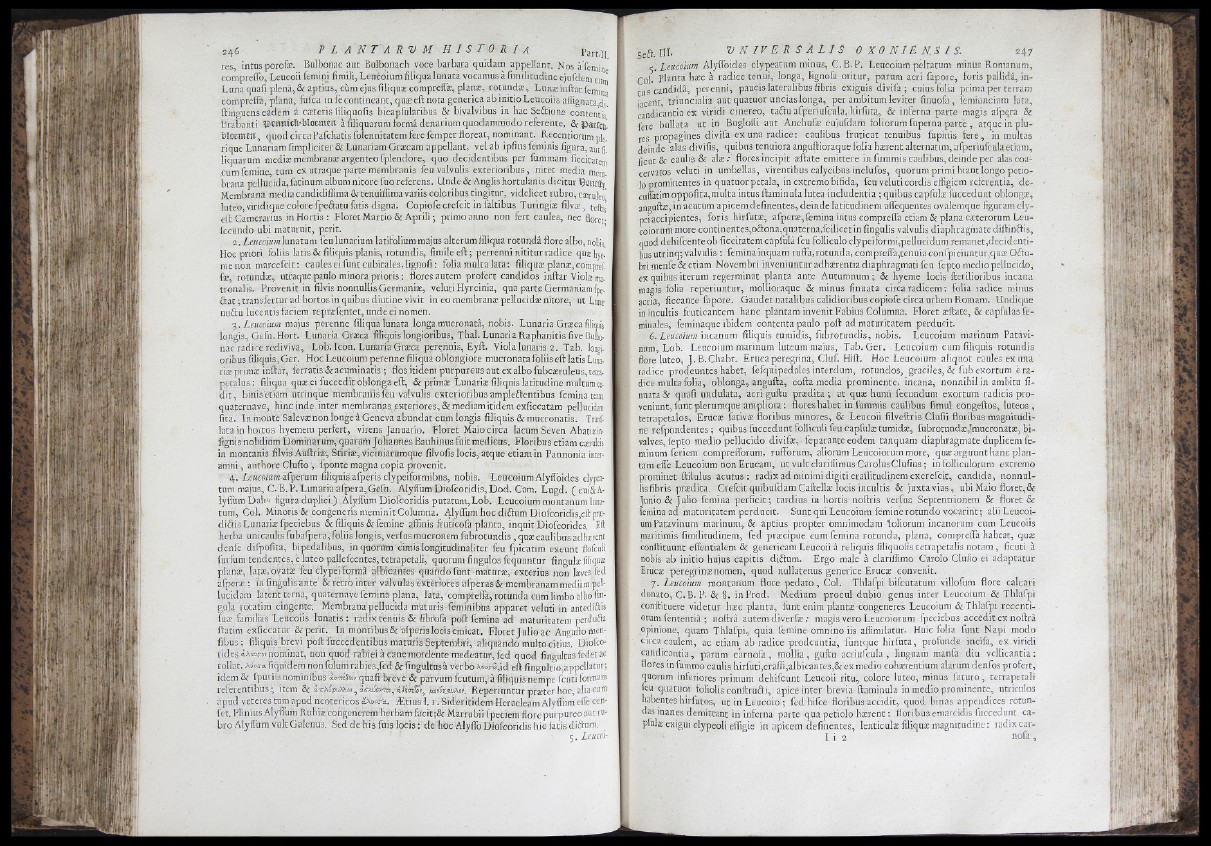 246 PLANTARUM HISTORIA Part. II.
res, intus porosæ. Bulbonac aut Bulbonach voce barbara quidam appellant. Nos à semine
compresso, Leucoii semini simili, Leucoium siliqua lunata vocamus à similitudine ejusdem cum
Luna quasi plenâ, & aptius, cùm ejus siliquæ compressæ, planæ, rotundæ, Lunæ instar semina
compressa, plana, fusca in se contineant, quæ est nota generica ab initio Leucoiis assignata, di-
stinguens eadem à cæteris siliquosis bicapsularibus & bivalvibus in hac Sectione contentis.
à siliquarum formâ denarium quodammodo referente, &
quod circa Paschatis solennitatem fere semper floreat, nominant. Recentiorum ple-
rique Lunariam simpliciter & Lunariam Græcam appellant, vel ab ipsius seminis figura, aut si-
liquarum mediæ membranæ argenteo splendore, quo decidentibus per summam siccitatem
cum semine, tum ex utraque parte membranis seu valvulis exterioribus, nitet media mem-
brana pellucida, satinum album nitore suo referens. Unde & Anglis hortulanis dicitur
Membrana media candidissima & tenuissima variis coloribus tingitur, videlicet rubro, cæruleo,
luteo, viridique colore spectatu satis digna. Copiose crescit in saltibus Turingiæ silvæ, testis
est Camerarius in Hortis: Floret Martio & Aprili; primo anno non fert caules, nec floret;
secundo ubi maturuit, perit.
2. Leucoium lunatum seu lunarium latifolium majus alterum siliqua rotundâ flore albo, nobis.
Hoc priori foliis latis & siliquis planis, rotundis, simile est; perrenni nititur radice quæ hye-
me non marcescit: caules ei sunt cubitales, lignosi: folia multa lata: siliquæ planæ, compres-
sæ, rotundæ, utraque paulo minora prioris: flores autem profert candidos instar Violæ ma-
tronalis. Provenit in silvis nonnullis Germaniæ, veluti Hyrcinia, qua parte Germaniam spe-
ctat; transfertur ad hortos in quibus diutine vivit in eo membranæ pellucidæ nitore, ut Lunæ
noctu lucentis faciem repræsentet, unde ei nomen.
3. Leucoium majus perenne siliqua lunata longa mucronatâ, nobis. Lunaria Græca siliquis
longis, Gesn. Hort. Lunaria Græca siliquis longioribus, Thal. Lunaria Raphanitis sive Bulbo-
nac radice rediviva, Lob. Icon. Lunaria Græca perennis, Eyst. Viola lunaris 2. Tab. longi-
oribus siliquis, Ger. Hoc Leucoium perenne siliqua oblongiore mucronata foliis est latis Luna-
riæ primæ instar, serratis & acuminatis; flos itidem purpureus aut ex albo subcæruleus, tetra-
petalos: siliqua quæ ei succedit oblonga est, & primæ Lunariæ siliquis latitudine multum ce-
dit, binis etiam utrinque membranis seu valvulis exterioribus amplectentibus semina tenui
quaternave, hinc inde inter membranas exteriores, & mediam itidem exsiccatam pellucidam
sita. In monte Salevæ non longè à Geneva abundat cum longis siliquis & mucronatis. Trans-
lata in hortos hyemem perfert, virens Januario. Floret Maio circa lacum Seven Abatiæ in-
signis nobilium Dominarum, quarum Johannes Bauhinus fuit medicus. Floribus etiam cæruleis
in montanis silvis Austriæ, Stiriæ, viciniarumque silvosis locis, atque etiam in Pannonia inter-
amni, authore Clusio, sponte magna copia provenit.
4. Leucoium asperum siliquis asperis clypeiformibus, nobis. Leucoium Alyssoides clypea-
tum majus, C. B. P. Lunaria aspera, Gesn. Alyssum Dioscoridis, Dod. Com. Lugd. ( cui & A-
lyssum Dalec. figura duplici ) Alyssum Dioscoridis putatum, Lob. Leucoium montanum luna-
tum, Col. Minois & congeneris meminit Columna. Alyssum hoc dictum Dioscoridis, est præ-
dictis Lunariæ speciebus & siliquis & semine affinis fruticosa planta, inquit Dioscorides. Est
herba unicaulis subaspera, foliis longis, versus mucronem subrotundis, quæ caulibus adhærent
dense disposita, bipedalibus, in quorum cimis longitudinaliter seu spicatim exeunt flosculi
sursum tendentes, è luteo pallescentes, tetrapetali, quorum singulos sequuntur singulæ siliquæ
planæ, latæ, ovatæ seu clypeiformâ albicantes quando sunt maturæ, exterius non læves sed
asperæ: in singulis ante & retro inter valvulas exteriores asperas & membranam mediam pel-
lucidam latent terna, quaternave semina plana, lata, compressa, rotunda cum limbo albo sin-
gula rotatim cingente. Membrana pellucida maturis seminibus apparet veluti in antedictis
suæ familiæ Leucoiis lunatis: radix tenuis & fibrosa post semina ad maturitatem perducta
statim exsiccatur & perit. In montibus & asperis locis emicat. Floret Julio ac Augusto men-
sibus: siliquis brevi post succedentibus maturis Septembri, aliquando multo citius. Diosco-
rides nominat, non quod rabiei à cane mordente medeatur, sed quod singultus sedet ac
tollat. siquidem non solum rabies, sed & singultus à verbo id est singultio, appellatur;
idem & ipsius nominibus quasi breve & parvum scutum, à siliquis nempe scuti formam
referentibus; item & Reperiuntur præter hoc, alia cum
apud veteres tum apud neotericos Ætius l. 1. Sideritidem Heracleam Alyssum esse cen-
set. Plinius Alyssum Rubiæ congenerem herbam facit; & Marrubii speciem flore purpureo aut ru-
bro Alyssum vult Galenus. Sed de his suis locis: de hoc Alysso Dioscoridis hic satis dictum.
5. Leucoi-
Sect. III. UNIVERSALIS OXONIENSIS. 247
5. Leucoium Alyssoides clypeatum minus, C. B. P. Leucoium peltatum minus Romanum,
Col. Planta hæc à radice tenui, longa, lignosa oritur, parum acri sapore, foris pallidâ, in-
tus candidâ, perenni, paucis lateralibus fibris exiguis divisa; cujus folia prima per terram
jacent, triuncialia aut quatuor uncias longa, per ambitum leviter sinuosa, semiunciam lata,
candicantia ex viridi cinereo, tactu asperiuscula, hirsuta, & inferna parte magis aspera &
fere bullata ut in Buglossi aut Anchusæ cujusdam foliorum superna parte, atque in plu-
res propagines divisa ex una radice: caulibus fruticat tenuibus supinis fere, in multas
deinde alas divisis, quibus tenuiora angustioraque folia hærent alternatim, asperiuscula etiam,
sicut & caulis & alæ: flores incipit æstate emittere in summis caulibus, deinde per alas coa-
cervatos veluti in umbellas, virentibus calycibus inclusos, quorum primi hiant longo petio-
lo prominentes in quatuor petala, in extremo bifida, seu veluti cordis effigiem referentia, de-
cussatim opposita, multa intus staminula lutea includentia; quibus capsulæ succedunt oblongæ,
angustæ, in acutum apicem definentes, deinde latitudinem assequentes ovalemque figuram cly-
pei accipientes, foris hirsutæ, asperæ, semina intus compressa etiam & plana cæterorum Leu-
coiorum more continentes, octona, quaterna, scilicet in singulis valvulis diaphragmate distinctis,
quod dehiscente ob siccitatem capsulâ seu folliculo clypeiformi, pellucidum remanet, decidenti-
bus utrinq; valvulis: semina inquam ruffa, rotunda, compressa, tenuia conspiciuntur, quæ Octo-
bri mense & etiam Novembri inveniuntur adhærentia diaphragmati seu septo medio pellucido,
ex quibus iterum regerminat planta ante Autumnum; & hyeme locis sterilioribus incana
magis folia reperiuntur, mollioraque & minus sinuata circa radicem: folia radice minus
acria, siccante sapore. Gaudet natalibus calidioribus copiose circa urbem Romam. Undique
in incultis fruticantem hanc plantam invenit Fabius Columna. Floret æstate, & capsulas se-
minales, seminaque ibidem contenta paulo post ad maturitatem perducit.
6. Leucoium incanum siliquis tumidis, subrotundis, nobis. Leucoium marinum Patavi-
num, Lob. Leucoium marinum luteum majus, Tab. Ger. Leucoium cum siliquis rotundis
flore luteo, J. B. Chabr. Eruca peregrina, Clus. Hist. Hoc Leucoium aliquot caules ex una
radice prodeuntes habet, sesquipedales interdum, rotundos, graciles, & sub exortum è ra-
dice multa folia, oblonga, angusta, costa media prominente, incana, nonnihil in ambitu si-
nuata & quasi undulata, acri gustu prædita; at quæ hunc secundum exortum radicis pro-
veniunt, sunt plerumque ampliora: flores habet in summis caulibus simul congestos, luteos,
tetrapetalos, Erucæ sativæ floribus minores, & Leucoii silvestris Clusii floribus magnitudi-
ne respondentes; quibus succedunt folliculi seu capsulæ tumidæ, subrotundæ, mucronatæ, bi-
valves, septo medio pellucido divisæ, separante eodem tanquam diaphragmate duplicem se-
minum seriem compressorum, ruffорum, aliorum Leucoiorum more, quæ arguunt hanc plan-
tam esse Leucoium non Erucam, ut vult clarissimus Carolus Clusius; in folliculorum extremo
prominet stilulus acutus: radix ad minimi digiti crassitudinem excrescit, candida, nonnul-
lis fibris prædita. Crescit quibusdam Castellæ locis incultis & juxta vias, ubi Maio floret, &
Junio & Julio semina perficit; tardius in hortis nostris versus Septentrionem & floret &
semina ad maturitatem perducit. Sunt qui Leucoium semine rotundo vocarint; alii Leucoi-
um Patavinum marinum, & aptius propter omnimodam foliorum incanorum cum Leucoiis
maritimis similitudinem, sed præcipue cum semina rotunda, plana, compressa habeat, quæ
constituunt essentialem & genericam Leucoii à reliquis siliquosis tetrapetalis notam, sicuti à
nobis ab initio hujus capitis dictum. Ergo male à clarissimo Carolo Clusio ei adaptatur
Erucæ peregrinæ nomen, quod nullatenus generice Erucæ convenit.
7. Leucoium montanum flore pedato, Col. Thlaspi biscutatum villosum flore calcari
donato, C. B. P. & §. in Prod. Medium procul dubio genus inter Leucoium & Thlaspi
constituere videtur hæc planta, sunt enim plantæ congeneres Leucoium & Thlaspi recenti-
orum sententiâ; nostrâ autem diversæ: magis vero Leucoiorum speciebus accedit ex nostrâ
opinione, quam Thlaspi, quia semine omnino iis assimilatur. Huic folia sunt Napi modo
circa caulem, ac etiam ab radice prodeuntia, suntque hirsuta, profunde incisa, ex viridi
candicantia, parum carnosa, mollia, gustu acriuscula, linguam mansa diu vellicantia:
flores in summo caulis hirsuti, crassi, albicantes, & ex medio cohærentium alarum denfos profert,
quorum inferiores primum dehiscunt Leucoii ritu, colore luteo, minus saturo, tetrapetali
seu quatuor foliolis constructi, apice inter brevia staminula in medio prominente, utriculos
habentes hirsutos, ut in Leucoio: sed hisce floribus accidit, quod binas appendices rotun-
das inanes demittant in inferna parte qua petiolo hærent: floribus emarcidis succedunt ca-
psulæ exigui clypeoli effigie in apicem definentes, lenticulæ siliquæ magnitudine: radix car-
I i 2 nosa,